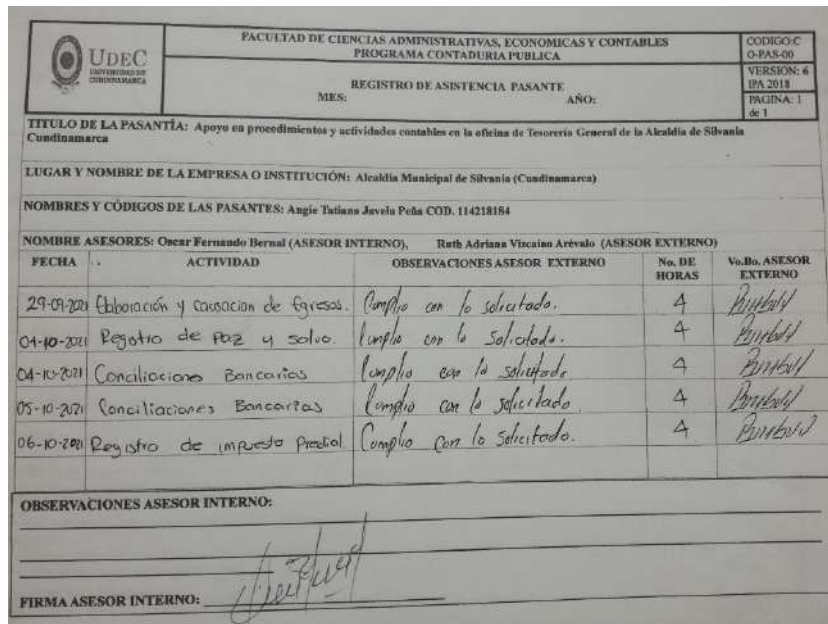 UDEC
UNIVERSIDAD DE
CUNDINAMARCA
FACULTAD DE CIENCIAS ADMINISTRATIVAS, ECONOMICAS Y CONTABLES
PROGRAMA CONTADURIA PUBLICA
REGISTRO DE ASISTENCIA PASANTE
MES: AÑO:
CODIGO:C
O-PAS-00
VERSION: 6
IPA 2018
PAGINA: 1
de 1
TITULO DE LA PASANTÍA: Apoyo en procedimientos y actividades contables en la oficina de Tesorería General de la Alcaldía de Silvania
Cundinamarca
LUGAR Y NOMBRE DE LA EMPRESA O INSTITUCIÓN: Alcaldía Municipal de Silvania (Cundinamarca)
NOMBRES Y CÓDIGOS DE LAS PASANTES: Angie Tatiana Javela Peña COD. 114218184
NOMBRE ASESORES: Oscar Fernando Bernal (ASESOR INTERNO), Ruth Adriana Vizcaino Arévalo (ASESOR EXTERNO)
FECHA ACTIVIDAD OBSERVACIONES ASESOR EXTERNO No. DE HORAS Vo.Bo. ASESOR EXTERNO
29-09-2021 Elaboración y causacion de Egresos. Cumplio con lo solicitado. 4
01-10-2021 Registro de paz y salvo. Cumplio con lo Solicitado. 4
04-10-2021 Conciliaciones Bancarias Cumplio con lo solicitado 4
05-10-2021 Conciliaciones Bancarias Cumplio con lo solicitado. 4
06-10-2021 Registro de impuesto Predial. Cumplio con lo Solicitado. 4
OBSERVACIONES ASESOR INTERNO:
FIRMA ASESOR INTERNO: